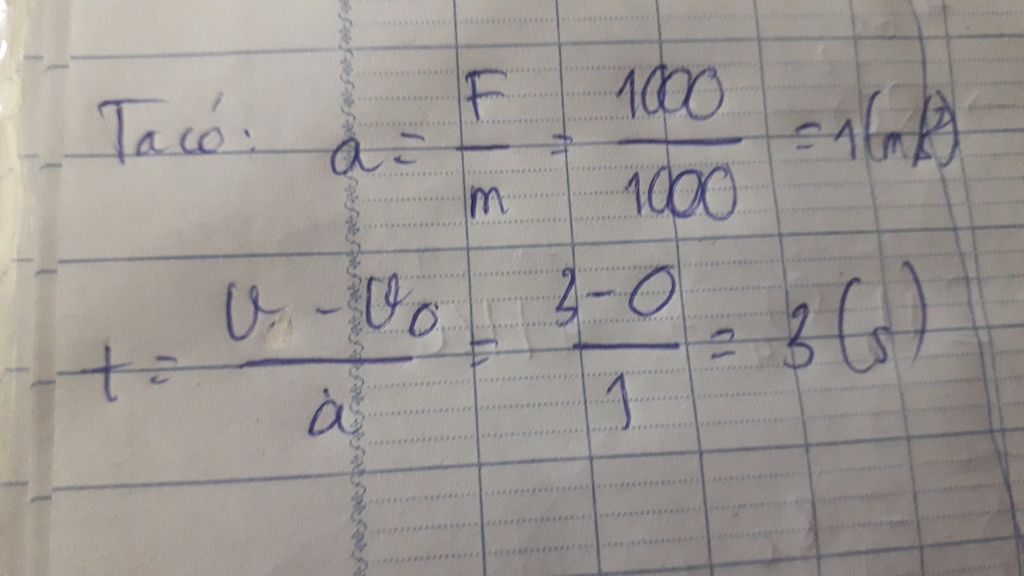 Ta có: a = F/m = 1000/1000 = 1 (m/s²)
t = v - v₀/a = 3 - 0/1 = 3 (s)